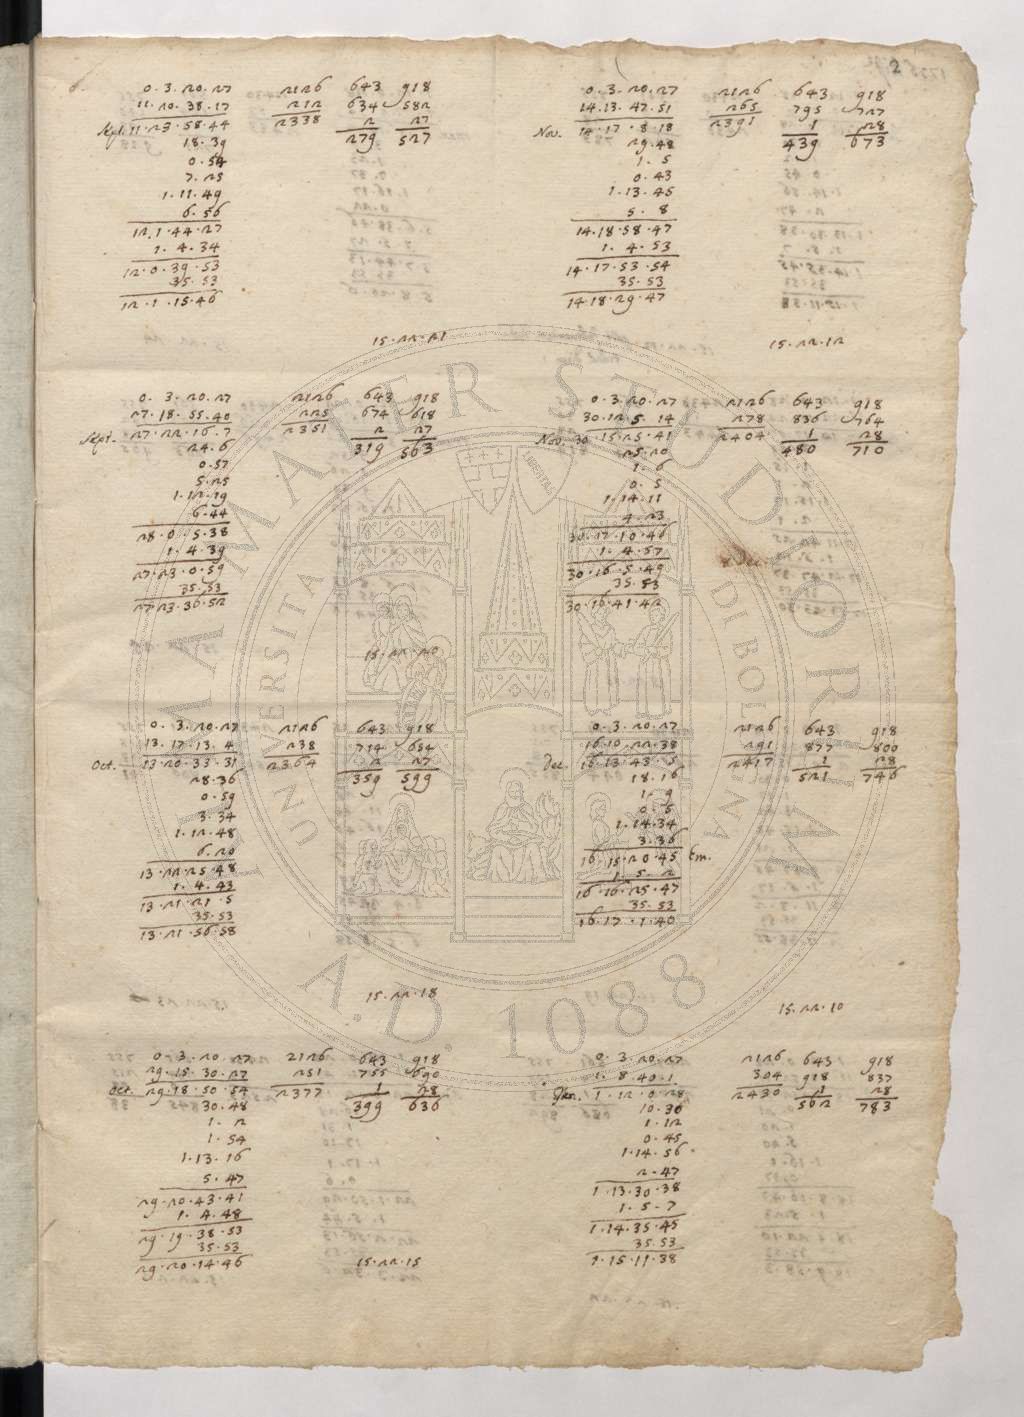 2
0.3.20.27 2126 643 918
11.20.38.17 212 634 582
Sept. 11.23.58.44 2338 2 27
18.39 279 527
0.54
7.25
1.11.49
6.56
12.1.44.27
1.4.34
12.0.39.53
35.53
12.1.15.46
15.22.21
0.3.20.27 2126 643 918
27.18.55.40 225 674 618
Sept. 27.22.16.7 2351 2 27
24.6 319 563
0.57
5.25
1.12.19
6.44
28.0.5.38
1.4.39
27.23.0.59
35.53
27.23.36.52
15.22.20
0.3.20.27 2126 643 918
13.17.13.4 238 714 654
Oct. 13.20.33.31 2364 2 27
28.36 359 599
0.59
3.34
1.12.48
6.20
13.22.25.48
1.4.43
13.21.21.5
35.53
13.21.56.58
15.22.18
0.3.20.27 2126 643 918
29.15.30.27 251 755 690
Oct. 29.18.50.54 2377 1 28
30.48 399 636
1.2
1.54
1.13.16
5.47
29.20.43.41
1.4.48
29.19.38.53
35.53
29.20.14.46
15.22.15
0.3.20.27 2126 643 918
14.13.47.51 265 795 727
Nov. 14.17.8.18 2391 1 28
29.48 439 673
1.5
0.43
1.13.45
5.8
14.18.58.47
1.4.53
14.17.53.54
35.53
14.18.29.47
15.22.12
0.3.20.27 2126 643 918
30.12.5.14 278 836 764
Nov. 30.15.25.41 2404 1 28
25.20 480 710
1.6
0.5
1.14.11
4.23
30.17.10.46
1.4.57
30.16.5.49
35.53
30.16.41.42
0.3.20.27 2126 643 918
16.10.22.38 291 877 800
Dec. 16.13.43.5 2417 1 28
18.16 521 746
1.9
0.5
1.14.34
3.36
16.15.20.45 Em.
1.5.2
16.16.25.47
35.53
16.17.1.40
15.22.10
0.3.20.27 2126 643 918
1.8.40.1 304 918 837
1.12.0.28 2430 1 28
10.30 562 783
1.12
0.45
1.14.56
2.47
1.13.30.38
1.5.7
1.14.35.45
35.53
1.15.11.38
ALMA MATER STUDIORUM
A.D. 1088
UNIVERSITÀ DI BOLOGNA
LIBERTAS